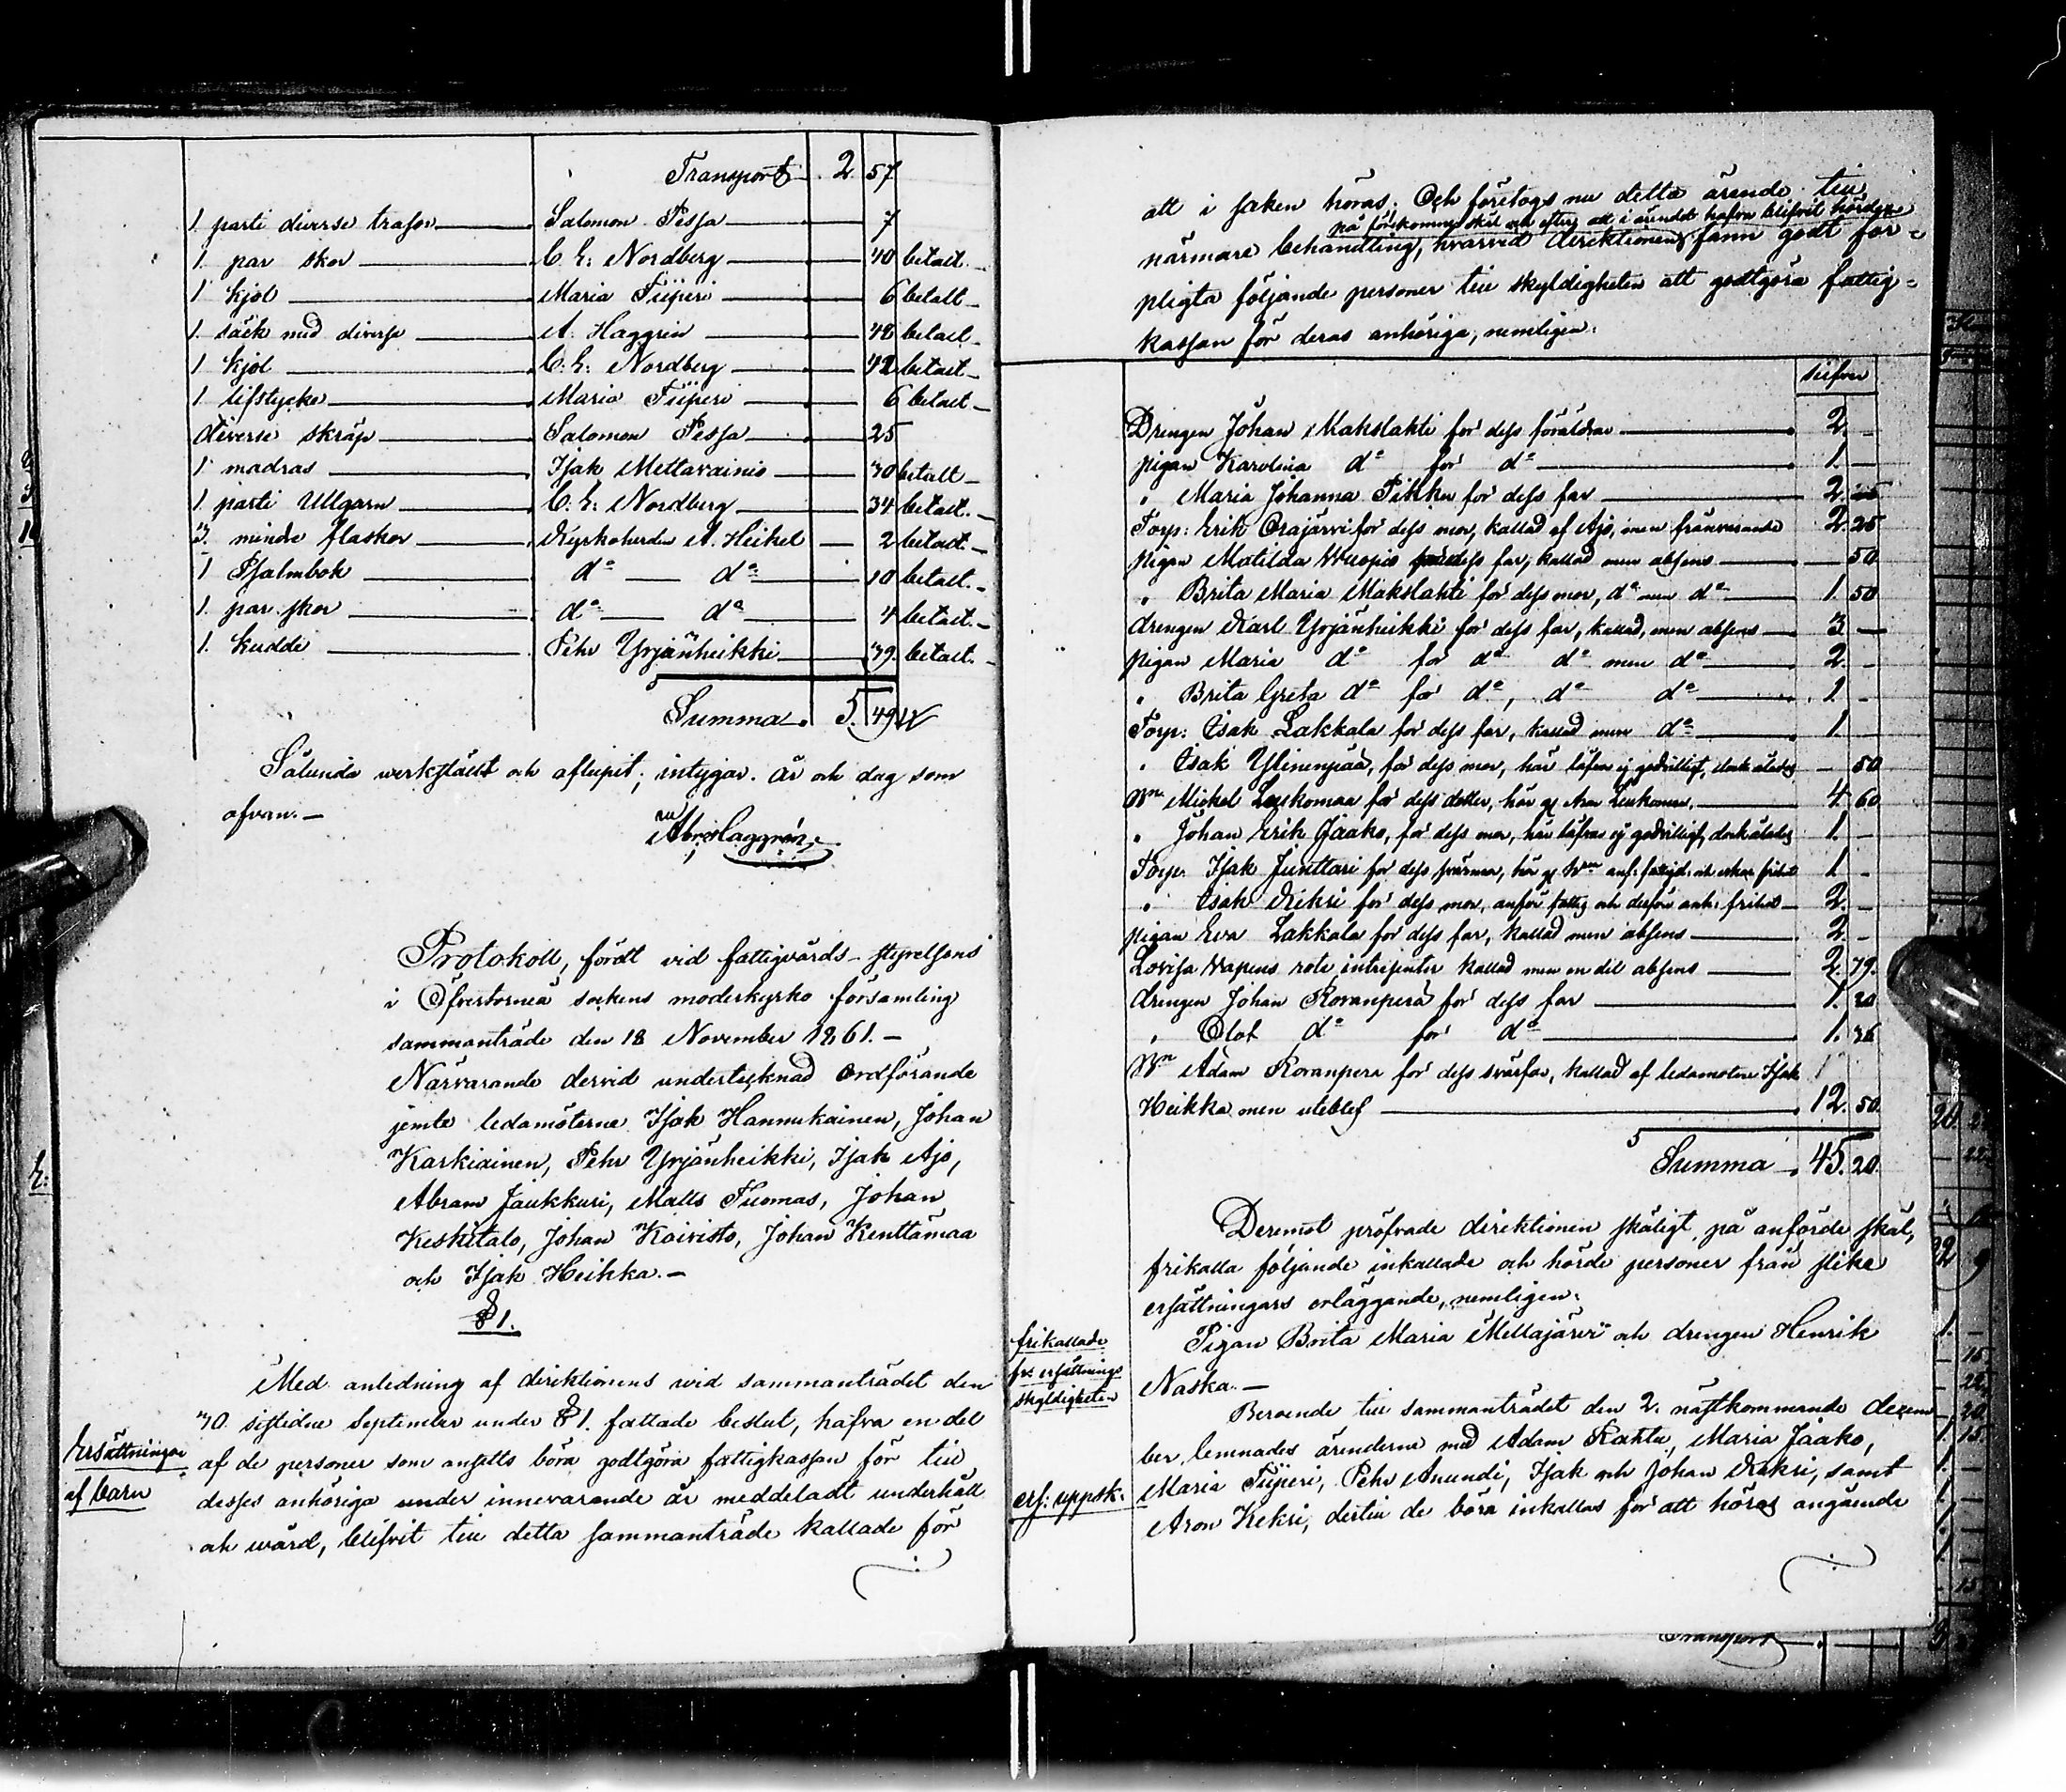 Transport 2 57
1 parti diverse trasor Salomon Pessa 7
1 par skor C. E. Nordberg 40 betalt
1 kjol Maria Tüperi 6 betalt
1 säck med diverse A. Haggrén 42 betalt
1 kjol C. E. Nordberg 42 betalt
1 lifstycke Maria Tüperi 6 betalt
diverse skräp Salomon Pessa 25
1 madras Isak Mettavainio 30 betalt
1 parti Ullgarn C. E. Nordberg 34 betalt.
3. mindre flaskor Kyrkoherden A. Heikel 2 betalt.
1 Psalmbok do do 10 betalt.
1. par skor do do 4 betalt.
1. kudde Pehr Yrjänheikki 39. betalt.
Summa 5. 49
Sålunda werkstäldt och aflupit; intygar. År och dag som
ofvan.
Abr. Haggrén
Protokoll, fördt vid fattigvårds-styrelsens
i Öfvertorneå sockens moderkyrko församling
sammanträde den 18 November 1861.
Närvarande dervid undertecknad Ordförande
jemte ledamöterne Isak Hannukainen, Johan
Karkiainen, Pehr Yrjänheikki, Isak Ajo,
Abram Jaukkuri, Matts Tuomas, Johan
Keskitalo, Johan Koivisto, Johan Kenttämaa
och Isak Heikka.
§ 1.
Med anledning af direktionens vid sammanträdet den
30. sistlidne September under § 1. fattade beslut, hafva en del
Ersättningar
af barn
af de personer som ansetts böra godtgöra fattigkassan för till
desses anhöriga under innevarande år meddeladt underhåll
och wård, blifvit till detta sammanträde kallade för
att i saken höras. Och företogs nu detta ärende till
på förekomne skäl och efter att i ärendet hafva blifvit hörde
närmare behandling, hvarvid direktionen fann godt för=
pligta följande personer till skyldigheten att godtgöra fattig=
kassan för deras anhöriga, nemligen:
silfver
Drengen Johan Makslahti för dess föräldrar 2. -
pigan Karolina do för do 1. -
" Maria Johanna Pikku för dess far 2.
Torp: Erik Orajärvi för dess mor, kallad af Ajo, men frånvarande 2. 25
pigan Matilda Wuopio för dess far, kallad men absens - 50
" Brita Maria Makslahti för dess mor, do men do 1. 50
drengen Karl Yrjänheikki för dess far, kallad, men absens 3 -
pigan Maria do för do do men do 2. -
" Brita Greta do för do, do do 1 -
Torp: Isak Lakkala för dess far, kallad men do 1 -
" Isak Ylinenpää, för dess mor, här lofvar ej godvilligt, dock ålades - 50
Wn Mickel Leukomaa för dess dotter, här gm Aron Leukomaa, 4 60
" Johan Erik Jaako, för dess mor, här lofvas ej godvilligt, dock ålades 1. -
Torp. Isak Junttari för dess svärmor, här gm Wn anf. fattigd. och erhåller frihet 1 -
" Isak Kekri för dess mor, anför fattig och derföre anh. frihet 2. -
pigan Eva Lakkala för dess far, kallad men absens 2. -
Lovisa Wapens rote intressenter kallad men en del absens 2. 79.
drengen Johan Rovanperä för dess far 1. 20
" Olof do för do 1. 36
Wn Adam Rovanpera för dess svärfar, kallad af ledamoten Isak
Heikka men uteblef 12. 50
Summa 45. 20.
Deremot pröfvade direktionen skäligt, på anförde skäl,
frikalla följande inkallade och hörde personer från slike
ersättningars erläggande, nemligen:
frikallade
frs ersättnings
skyldigheten
Pigan Brita Maria Mellajärvi och drengen Henrik
Naska.
Beroende till sammanträdet den 2. nästkommande decem
ber lemnades ärenderna med Adam Rantu, Maria Jaako,
erf: uppsk:
Maria Tüperi, Pehr Anundi, Isak och Johan Kekri, samt
Aron Kekri, dertill de böra inkallas för att höras angående
Transport